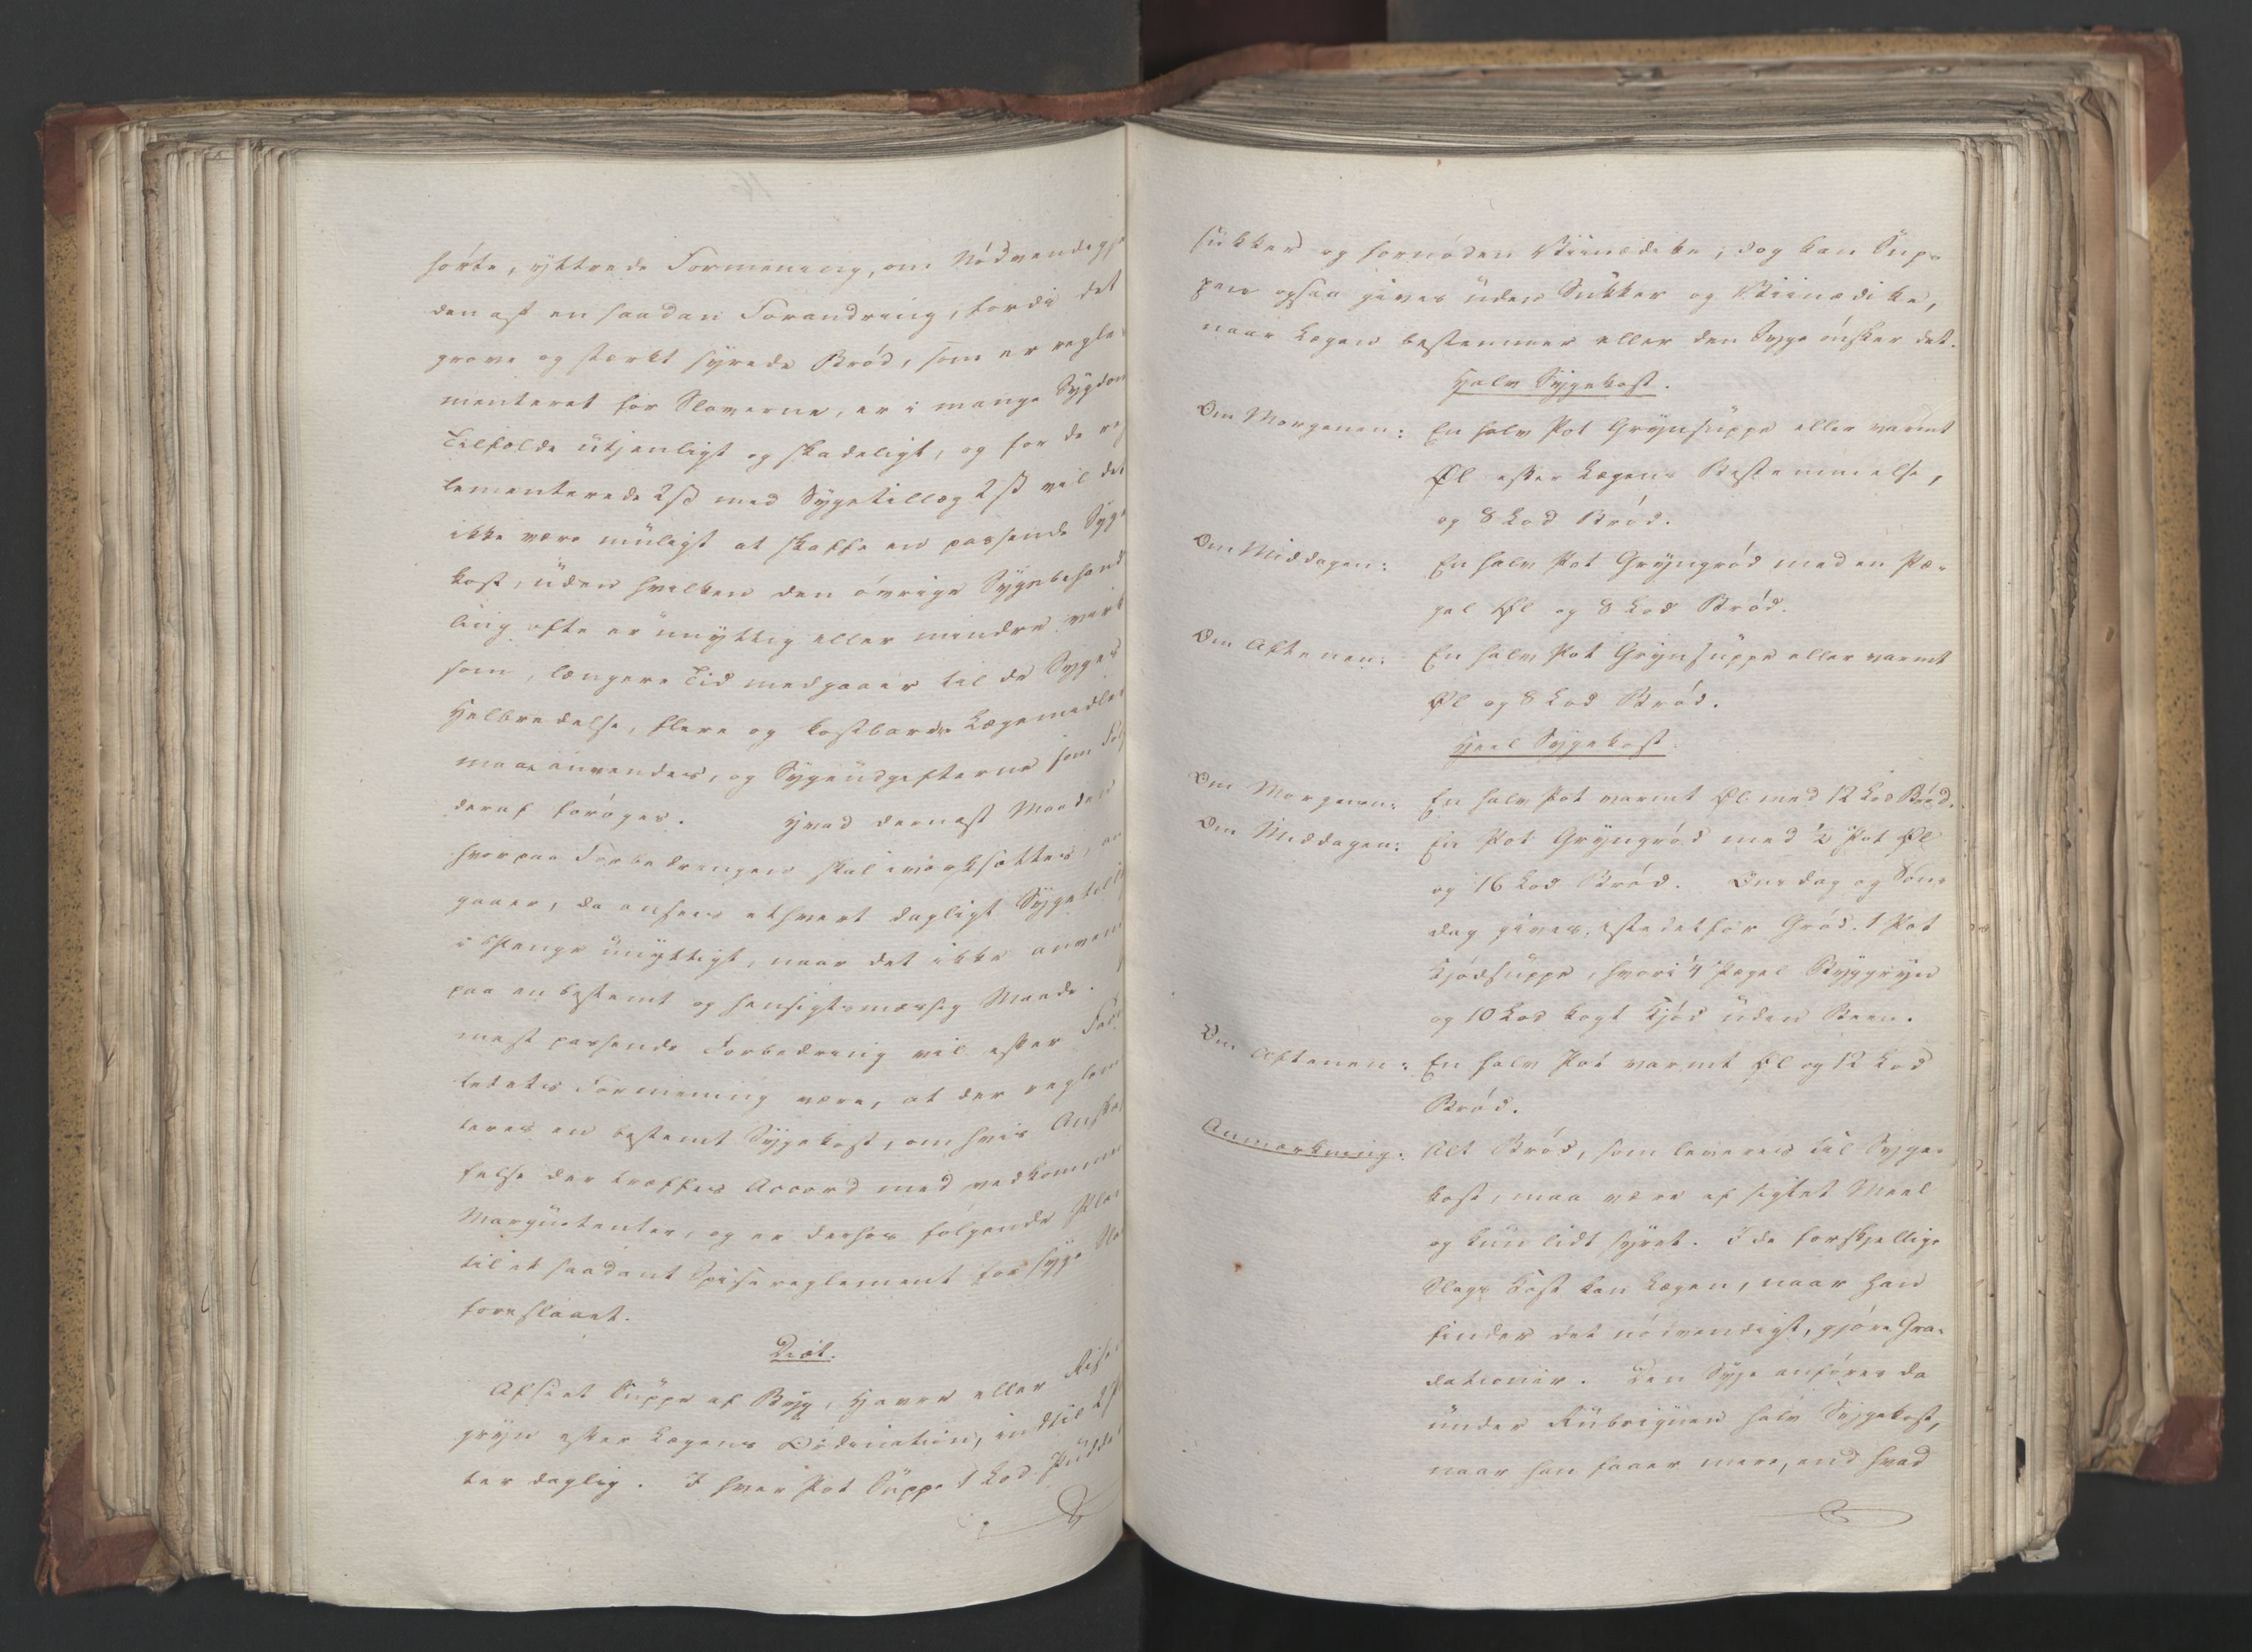 hørte, yttrede Formening, om Nødvendighe
den af en saadan Forandring, fordi det
grove og stærkt syrede Brød, som er regle-
menteret for Slaverne, er i mange Sygdom
Tilfælde utjenligt og skadeligt, og for de reg
lementerede 2 ß med Sygetillæg 2 ß vil det
ikke være muligt at skaffe en passende Syge
kost, uden hvilken den øvrige Sygebehand
ling ofte er unyttig eller mindre virk
som, længere Tid medgaaer til de Syges
Helbredelse, flere og kostbarere Lægemidler
maae anvendes, og Sygeudgifterne som Føl
deraf forøges. Hvad dernæst Maaden
hvorpaa Forbedringen skal iværksættes, an
gaaer, da ansees ethvert dagligt Sygetillæg
i Penge unyttigt, naar det ikke anven
paa en bestemt og hensigtsmæssig Maade.
mest passende Forbedring vil efter
tetets Formening være, at der reglem
teres en bestemt Sygekost, om hvis Anskaf
felse der træffes Accord med vedkommen
Marquetenter, og er derhos følgende Pla
til et saadant Spisereglement for syge Sla
foreslaaet.
Diæt.
Afsiet Suppe af Byg, Havre eller Riis-
gryn efter Lægens Ordination, indtil 2 P
ter daglig. I hver Pot Suppe 1 Lod Pudder
sukker og fornøden Viinædike; dog kan Sup-
pen ogsaa gives uden Sukker og Viinædike,
naar Lægen bestemmer eller den Syge ønsker det.
Halv Sygekost.
Om Morgenen: En halv Pot Grynsuppe eller varmt
Øl efter Lægens Bestemmelse,
og 8 Lod Brød.
Om Middagen: En halv Pot Gryngrød med en Pæ-
gel Øl og 8 Lod Brød.
Om Aftenen: En halv Pot Grynsuppe eller varmt
Øl og 8 Lod Brød.
Heel Sygekost.
Om Morgenen: En halv Pot varmt Øl med 12 Lod Brød.
Om Middagen: En Pot Gryngrød med ½ Pot Øl
og 16 Lod Brød. Onsdag og Søn-
dag gives istedetfor Grød 1 Pot
Kjødsuppe, hvori ¼ Pægel Byggryn
og 10 Lod kogt Kjød uden Been.
Om Aftenen: En halv Pot varmt Øl og 12 Lod
Brød.
Anmærkning: Alt Brød, som leveres til Syge-
kost, maa være af sigtet Meel
og kun lidt syret. I de forskjellige
Slags Kost kan Lægen, naar han
finder det nødvendigt, gjøre Gra-
dationer. Den Syge anføres da
under Rubriquen halv Sygekost,
naar han faaer mere, end hvad